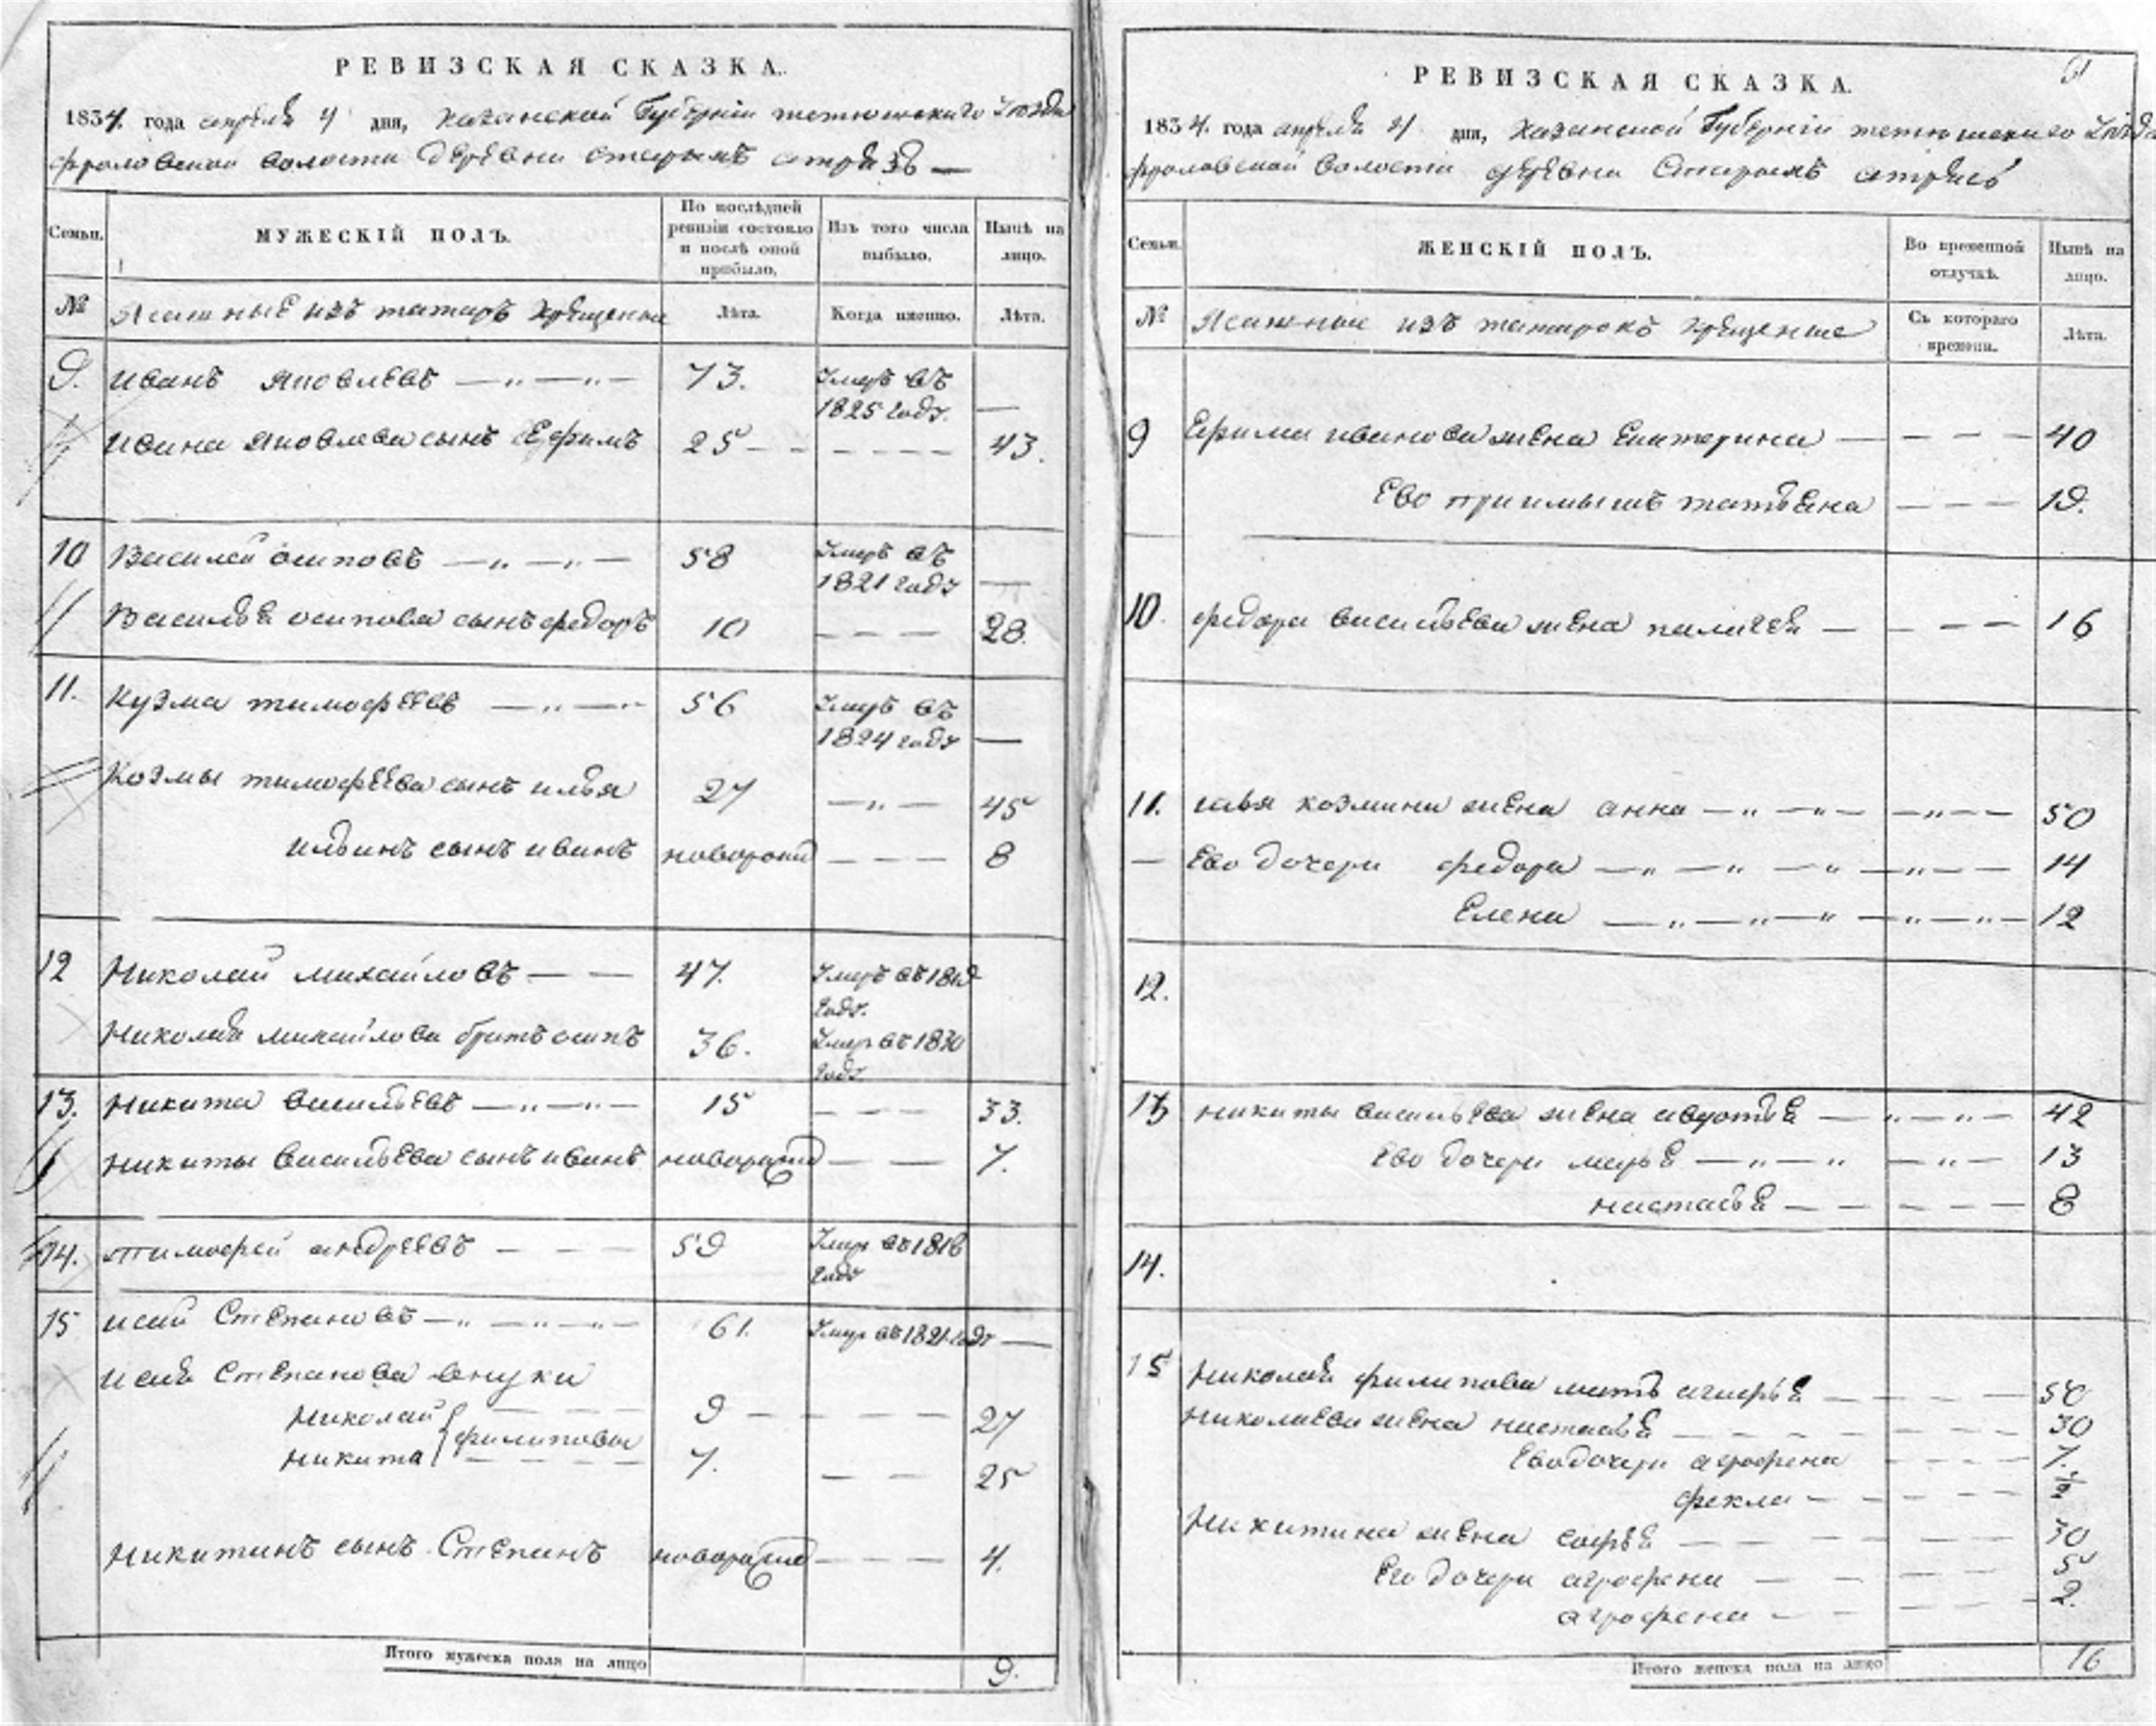 РЕВИЗСКАЯ СКАЗКА.
1834. года апреля 4 дня, Казанской Губерніи тетюшскаго Уезда
фроловской волости деревни старыхъ атрясь —
Семьи.
МУЖЕСКІЙ ПОЛЪ.
По послѣдней ревизіи состояло и послѣ оной прибыло.
Изъ того числа выбыло.
Нынѣ на лицо.
№
Ясашные изъ татаръ крещеные
Лѣта.
Когда именно.
Лѣта.
9. Иванъ Яковлевъ — „ — „ — 73. Умеръ въ 1825 году. —
Ивана Яковлева сынъ Ефимъ 25 - - - - - - 43.
10 Василей осиповъ — „ — „ — 58 Умеръ въ 1821 году —
Василья осипова сынъ федоръ 10 - - - 28.
11. Кузма тимофеевъ — „ — „ 56 Умеръ въ 1824 году —
Козмы тимофеева сынъ илья 27 — „ — 45
ильинъ сынъ иванъ новорожд - - - 8
12 Николай михайловъ — — 47. Умеръ въ 1819 году.
Николая михайлова братъ осипъ 36. Умеръ въ 1830 году
13. Никита васильевъ — „ — „ — 15 - - - 33.
никиты васильева сынъ иванъ новорожд — — 7.
14. тимофей андреевъ - - - 59 Умеръ въ 1818 году
15 исай Степановъ — „ — „ — „ — 61. Умеръ въ 1821 году —
исая Степанова внуки
николай } филиповы 9 - - - - 27
никита } 7. - - - 25
никитинъ сынъ Степанъ новорожд - - - 4.
Итого мужеска пола на лицо 9.
51
РЕВИЗСКАЯ СКАЗКА.
1834. года апреля 4 дня, Казанской Губерніи тетюшскаго Уезда
фроловской волости деревни Старыхъ атрясь
Семьи.
ЖЕНСКІЙ ПОЛЪ.
Во временной отлучкѣ.
Нынѣ на лицо.
№
Ясашные изъ татаръ крещеные
Съ котораго времени.
Лѣта.
9 Ефима иванова жена Екатерина — - - - 40
Ево приимышъ татьяна - - - 19.
10. федора васильева жена палагея — - - - 16
11. илья козмина жена анна — „ — „ — — „ — — 50
— Ево дочери федора — „ — „ — „ — „ — — 14
Елена — „ — „ — „ — „ — „ — 12
12.
13 никиты васильева жена авдотья — „ — „ — 42
Ево дочери марья — „ — „ — „ — 13
настасья - - - - - 8
14.
15 Николая филипова мать агафья - - - 50
Николаева жена настасья - - - - 30
Ево дочери аграфена - - - 7.
фекла - - - - ½
Никитина жена софья - - - - 30
Его дочери аграфена - - - 5
аграфена - - - 2.
Итого женска пола на лицо 16